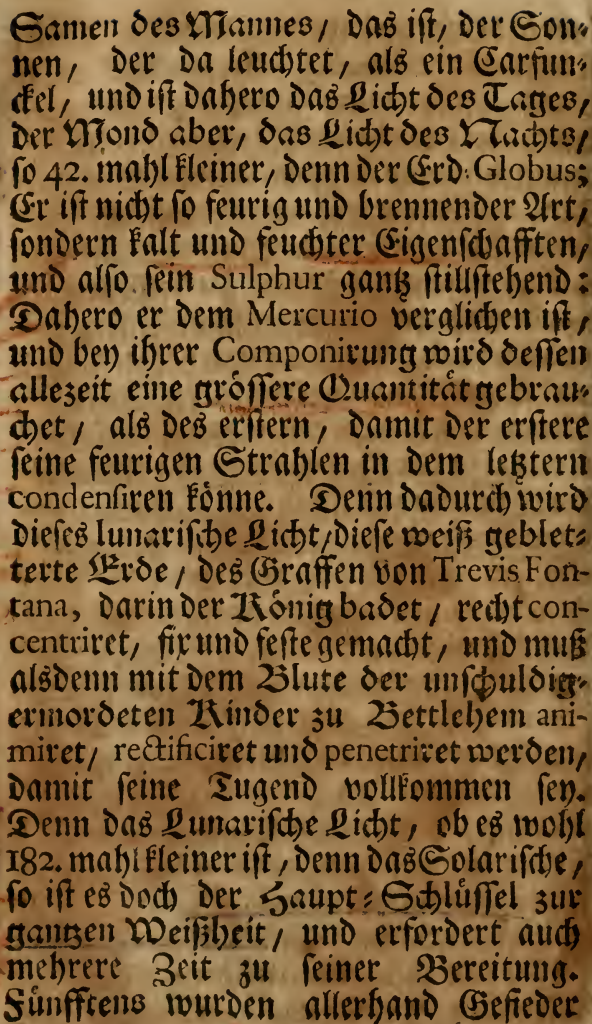 Samen des Mannes/ das ist/ der Son-
nen/ der da leuchtet/ als ein Carfun-
ckel/ und ist dahero das Licht des Tages/
der Mond aber/ das Licht des Nachts/
so 42. mahl kleiner/ denn der Erd-Globus;
Er ist nicht so feurig und brennender Art/
sondern kalt und feuchter Eigenschafften/
und also sein Sulphur gantz stillstehend:
Dahero er dem Mercurio verglichen ist/
und bey ihrer Componirung wird dessen
allezeit eine grössere Quantität gebrau-
chet/ als des erstern/ damit der erstere
seine feurigen Strahlen in dem letztern
condensiren könne. Denn dadurch wird
dieses lunarische Licht/diese weiß geblet-
terte Erde/ des Graffen von Trevis Fon-
tana, darin der König badet/ recht con-
centriret/ fix und feste gemacht/ und muß
alsdenn mit dem Blute der unschuldig-
ermordeten Kinder zu Bettlehem ani-
miret/ rectificiret und penetriret werden/
damit seine Tugend vollkommen sey.
Denn das Lunarische Licht/ ob es wohl
182. mahl kleiner ist/ denn das Solarische/
so ist es doch der Haupt-Schlüssel zur
gantzen Weißheit/ und erfordert auch
mehrere Zeit zu seiner Bereitung.
Fünfftens wurden allerhand Gefieder